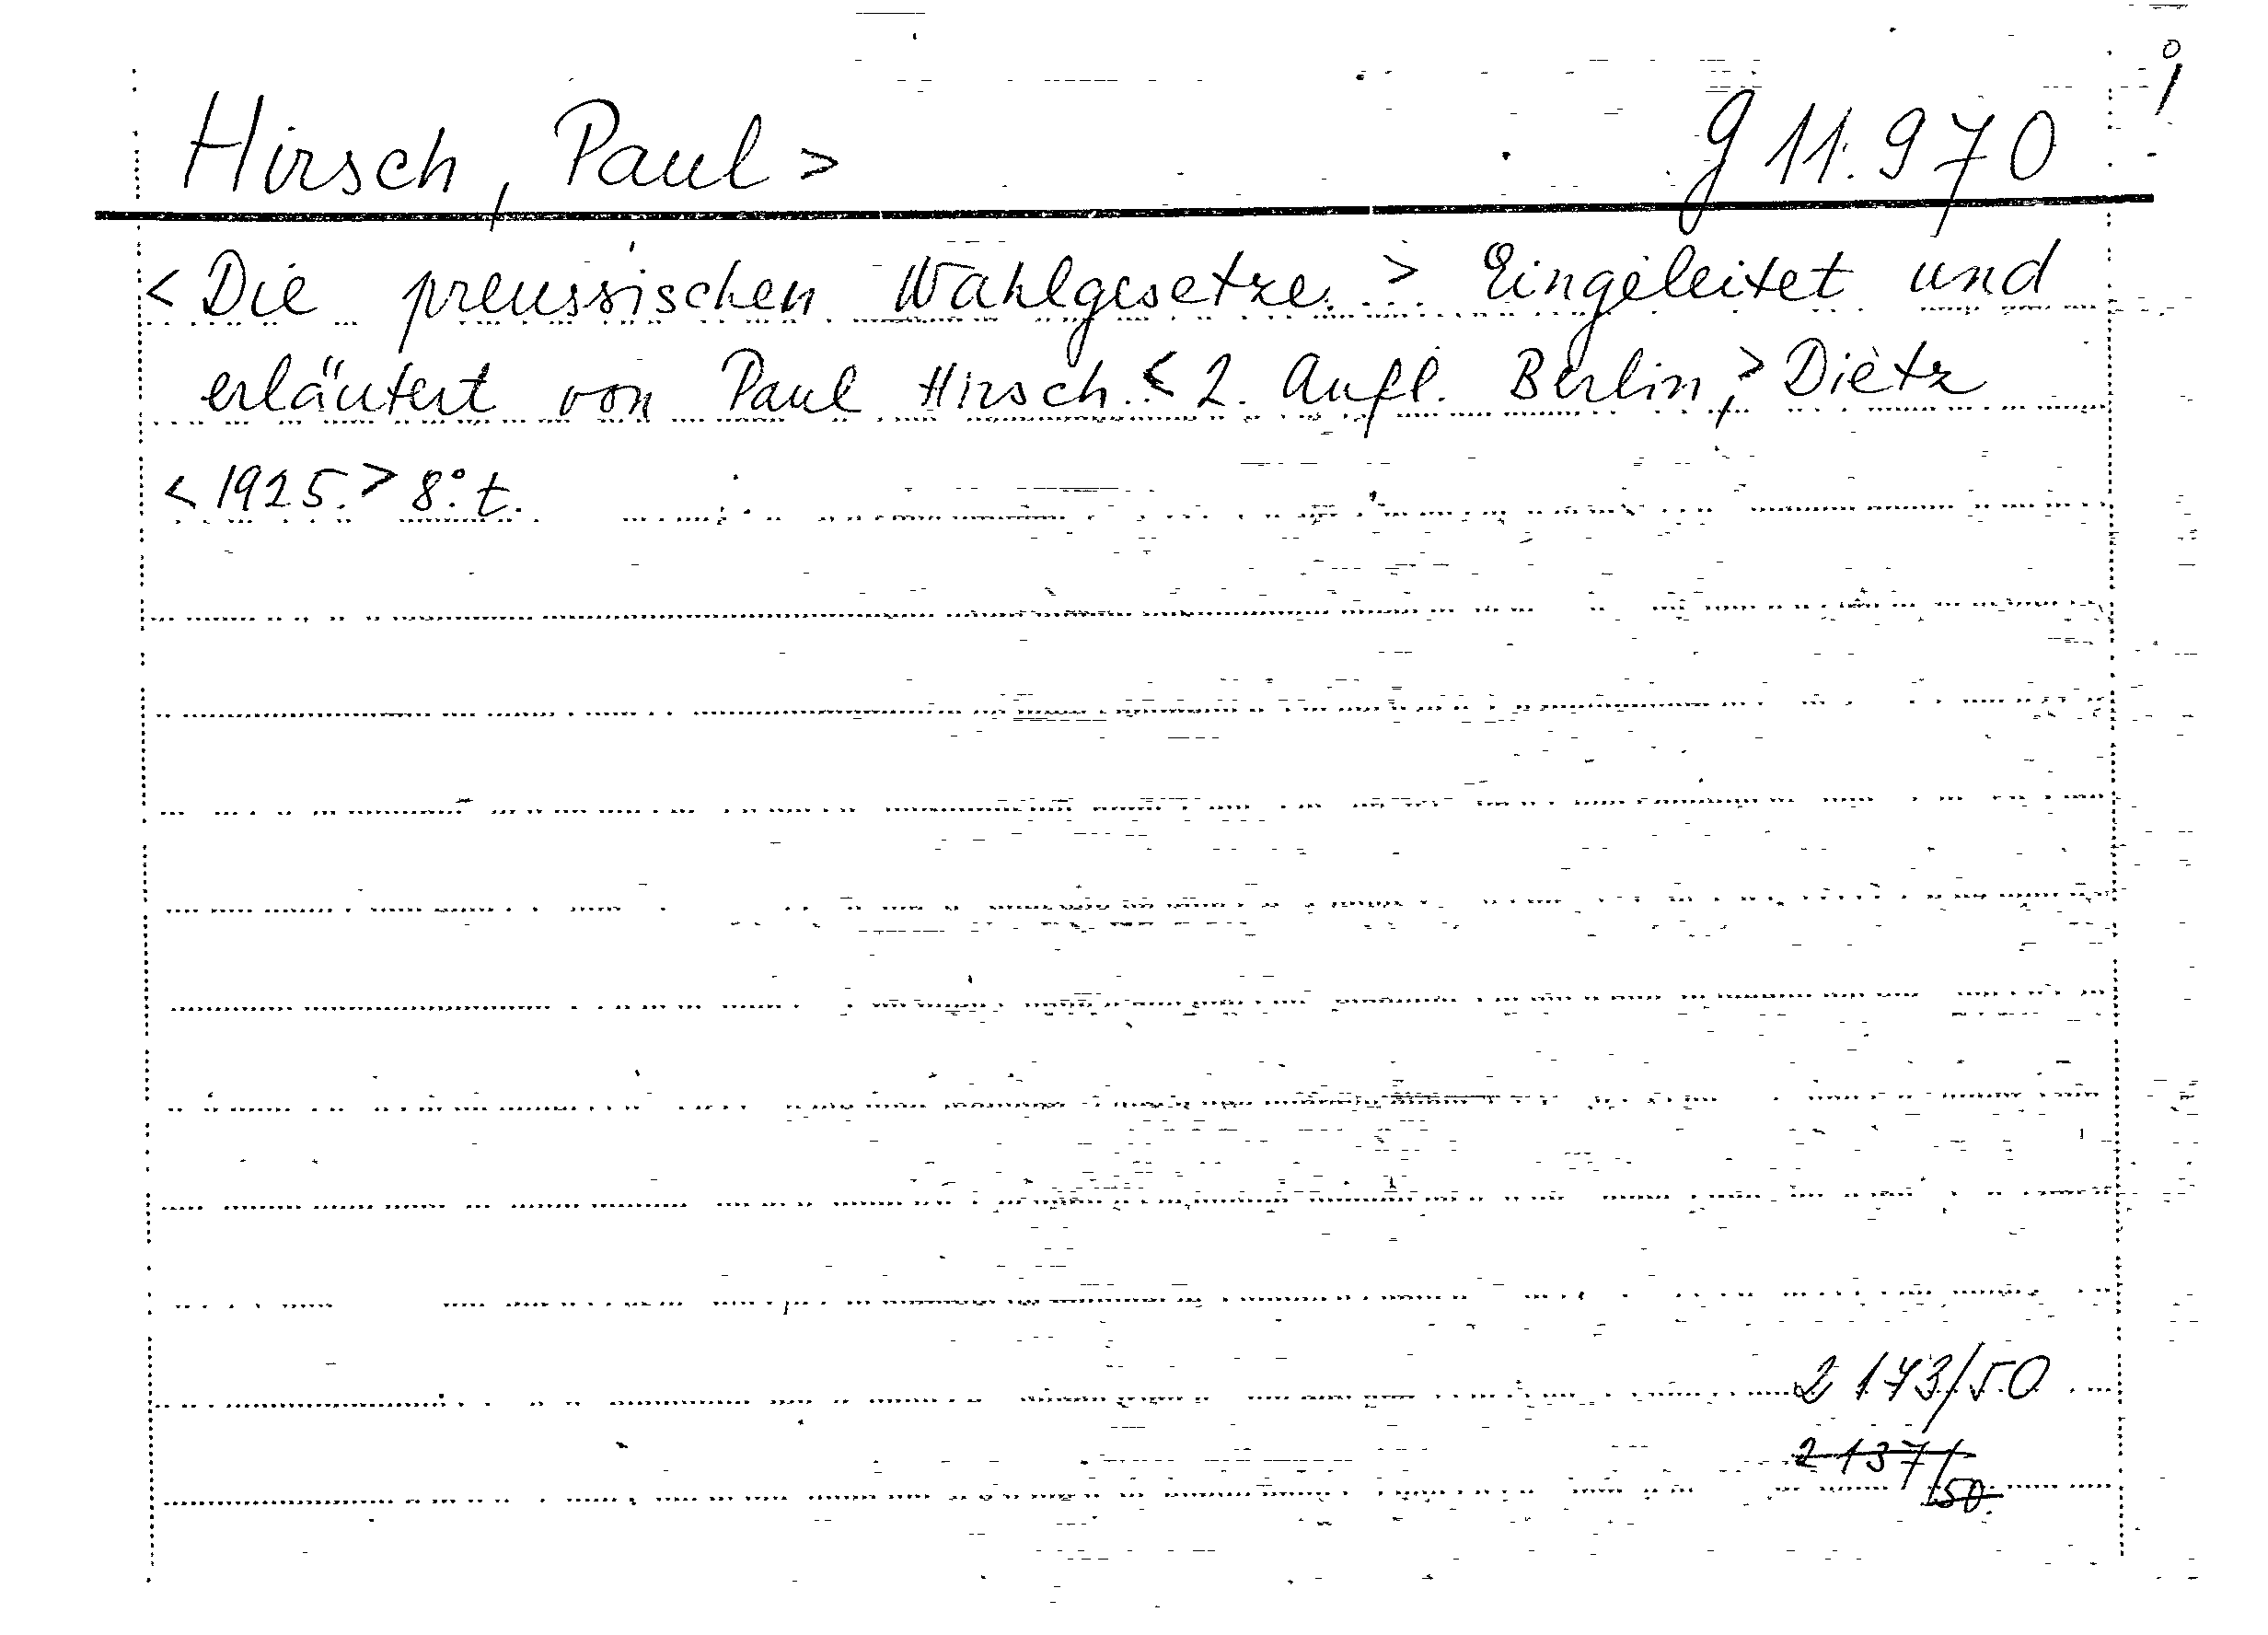 Hirsch, Paul > g 11.970
< Die preussischen Wahlgesetze. > Eingeleitet und
erläutert von Paul Hirsch. < 2. Aufl. Berlin, > Dietz
< 1925. > 8° t.
2 173/50
2 137/50.